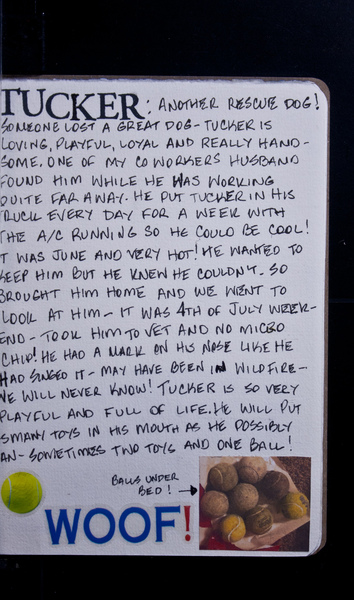 TUCKER: ANOTHER RESCUE DOG!
SOMEONE LOST A GREAT DOG - TUCKER IS
LOVING, PLAYFUL, LOYAL AND REALLY HAND-
SOME. ONE OF MY COWORKERS HUSBAND
FOUND HIM WHILE HE WAS WORKING
QUITE FAR AWAY. HE PUT TUCKER IN HIS
TRUCK EVERY DAY FOR A WEEK WITH
THE A/C RUNNING SO HE COULD BE COOL!
IT WAS JUNE AND VERY HOT! HE WANTED TO
KEEP HIM BUT HE KNEW HE COULDN'T. SO
BROUGHT HIM HOME AND WE WENT TO
LOOK AT HIM - IT WAS 4TH OF JULY WEEK-
END - TOOK HIM TO VET AND NO MICRO
CHIP! HE HAD A MARK ON HIS NOSE LIKE HE
HAD SINGED IT - MAY HAVE BEEN IN WILDFIRE -
WE WILL NEVER KNOW! TUCKER IS SO VERY
PLAYFUL AND FULL OF LIFE. HE WILL PUT
SMANY TOYS IN HIS MOUTH AS HE POSSIBLY
AN - SOMETIMES TWO TOYS AND ONE BALL!
BALLS UNDER
BED! →
WOOF!